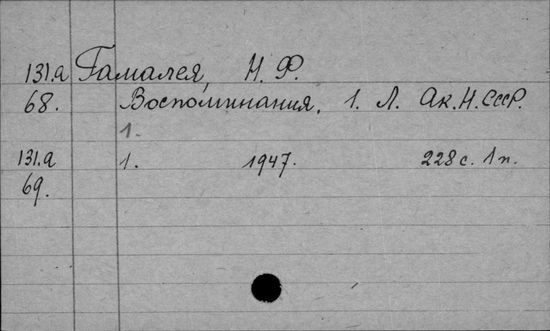 131.а Гамалея, Н. Ф.
68. Воспоминания. 1. Л. Ак.Н.СССР.
1.
131.а 1. 1947. 228 с. 1 п.
69.